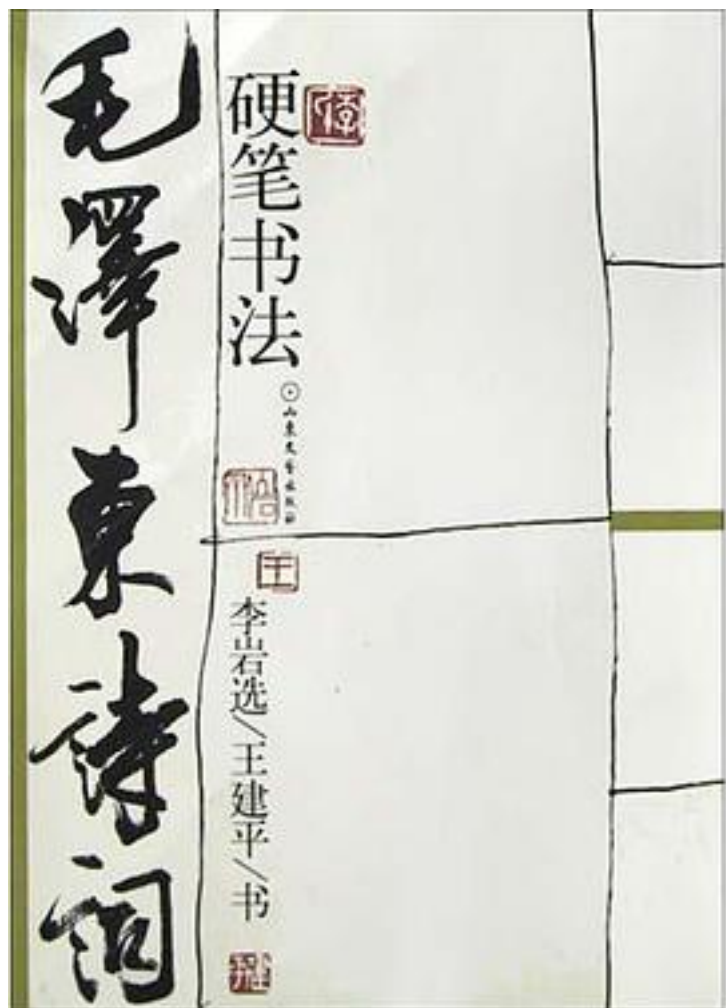 毛澤東詩詞
硬笔书法
山东文艺出版社
李岩选/王建平/书
王